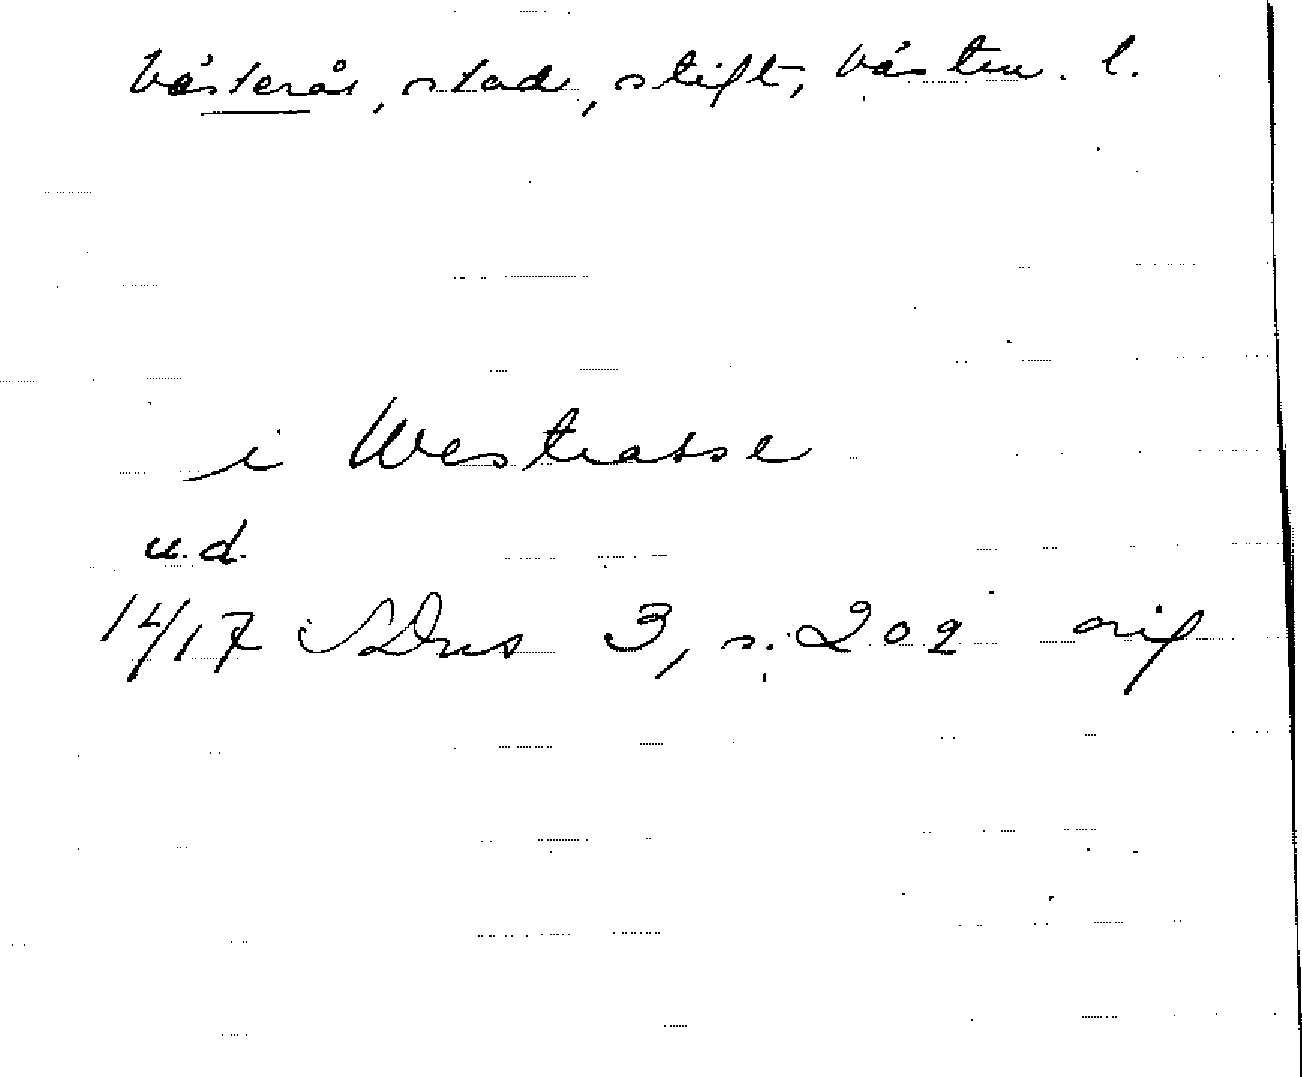 Västerås, stad, stift, Västm. l.
i Westrasse
u.d.
14/17 SDns 3, s. 202 orig